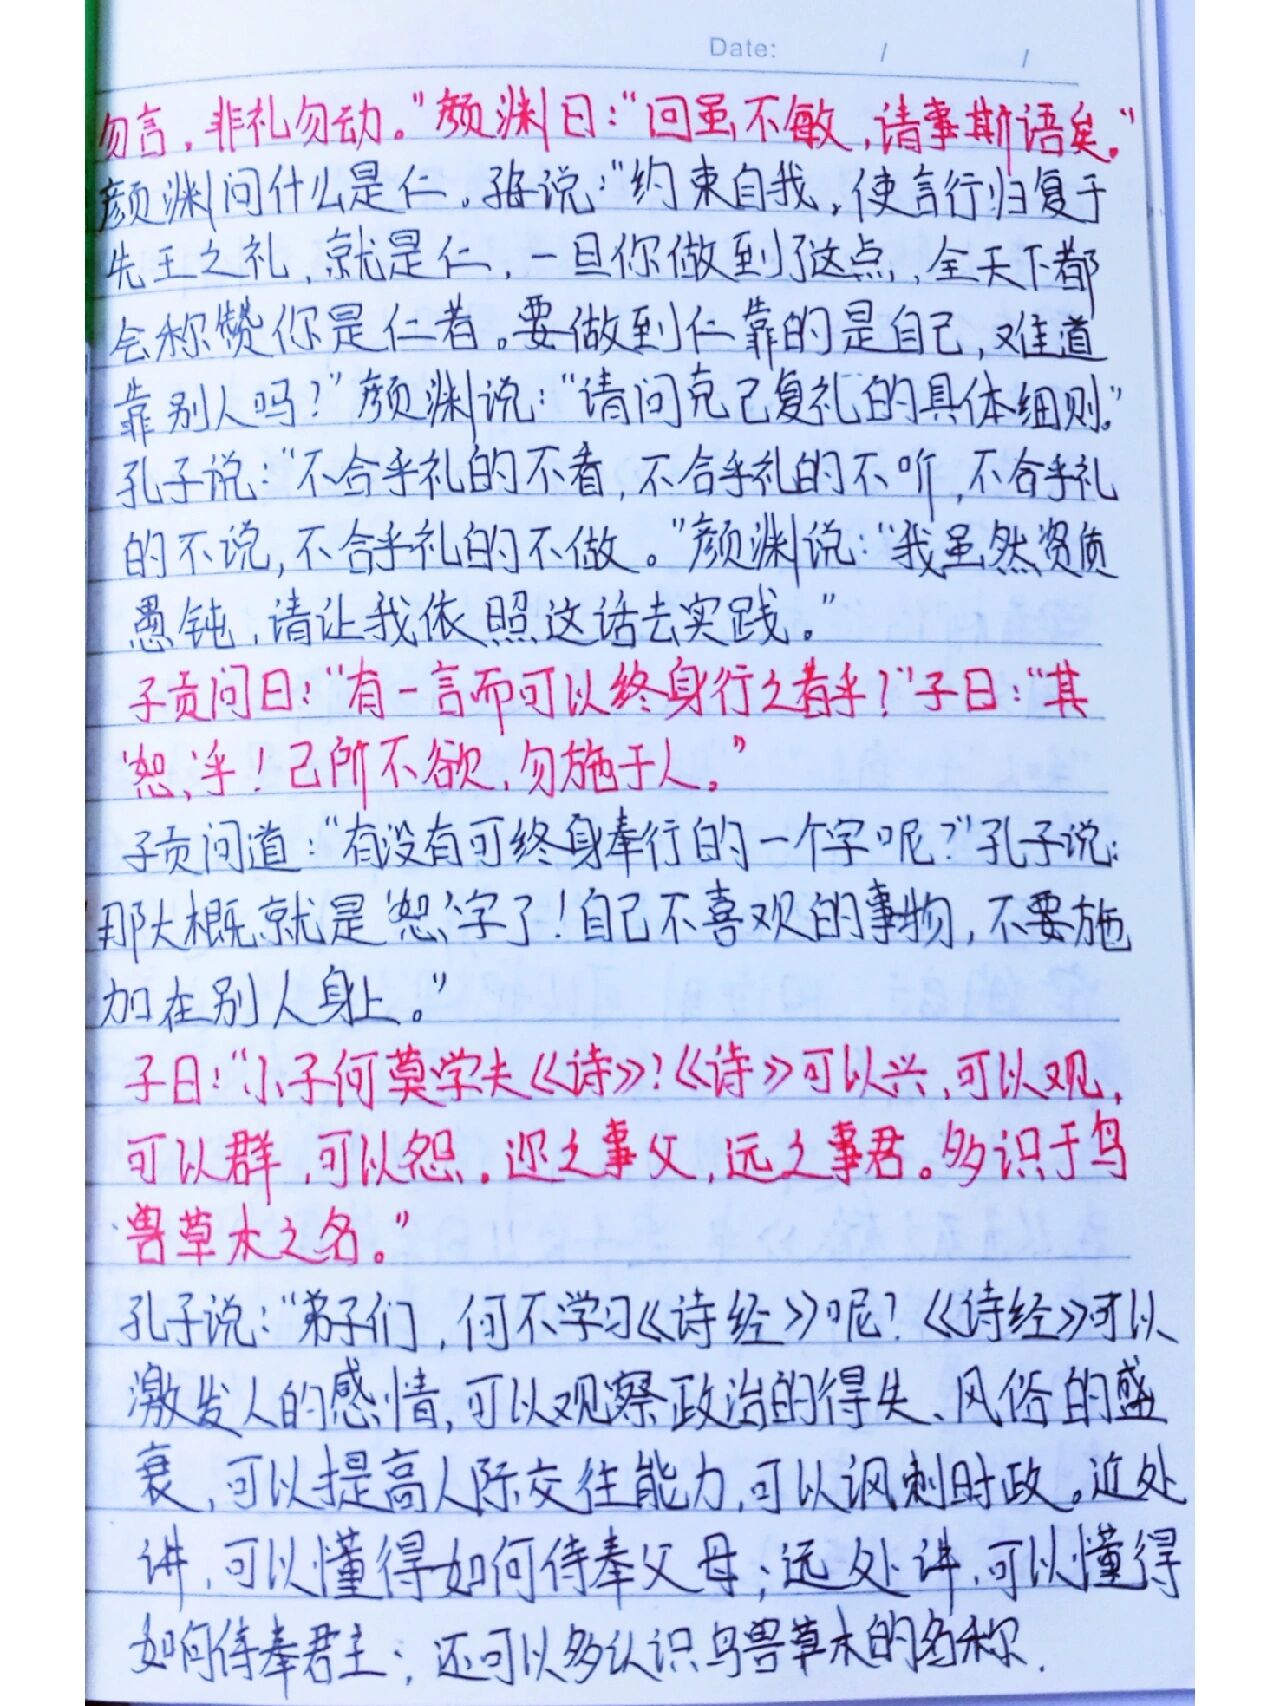 Date: / /
勿言，非礼勿动。”颜渊曰：“回虽不敏，请事斯语矣。”
颜渊问什么是仁。孔子说：“约束自我，使言行归复于
先王之礼，就是仁，一旦你做到了这点，全天下都
会称赞你是仁者。要做到仁靠的是自己，难道
靠别人吗？”颜渊说：“请问克己复礼的具体细则。”
孔子说：“不合乎礼的不看，不合乎礼的不听，不合乎礼
的不说，不合乎礼的不做。”颜渊说：“我虽然资质
愚钝，请让我依照这话去实践。”
子贡问曰：“有一言而可以终身行之者乎？”子曰：“其
‘恕’乎！己所不欲，勿施于人。”
子贡问道：“有没有可终身奉行的一个字呢？”孔子说：
那大概就是‘恕’字了！自己不喜欢的事物，不要施
加在别人身上。”
子曰：“小子何莫学夫《诗》？《诗》可以兴，可以观，
可以群，可以怨。迩之事父，远之事君。多识于鸟
兽草木之名。”
孔子说：“弟子们，何不学习《诗经》呢？《诗经》可以
激发人的感情，可以观察政治的得失、风俗的盛
衰，可以提高人际交往能力，可以讽刺时政。近处
讲，可以懂得如何侍奉父母；远处讲，可以懂得
如何侍奉君主；还可以多认识鸟兽草木的名称.